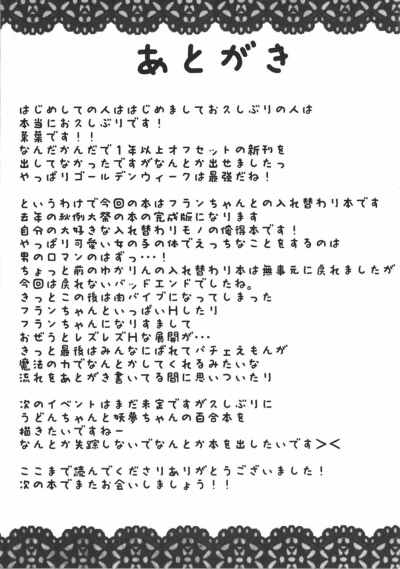 あとがき
はじめしての人ははじめましておスしぶりの人は
本当におスしぶりです！
葉です！！
なんだかんだで1年以上オフセットの新刊を
出してなかったですがなんとか出せましたっ
やっぱりゴールデンウィークは最強だね！
というわけで今回の本はフランちゃんとの入れ替わり本です
去年の秋例大祭の本の完成版になります
自分の大好きな入れ替わりモノの俺得本です！
やっぱり可愛い女の子の体でえっちなことをするのは
男のロマンのはずっ…！
ちょっと前のゆかりんの入れ替わり本は無事元に戻れましたが
今回は戻れないバッドエンドでしたね。
きっとこの後は肉バイブになってしまった
フランちゃんといっぱいHしたり
フランちゃんになりすまして
おぜうとレズレズHな展開が…
きっと最後はみんなにばれてパチェえもんが
魔法の力でなんとかしてくれるみたいな
流れをあとがき書いてる間に思いついたり
次のイベントはまだ未定ですがスしぶりに
うどんちゃんと妖夢ちゃんの百合本を
描きたいですねー
なんとか失踪しないでなんとか本を出したいです＞＜
ここまで読んでくださりありがとうございました！
次の本でまたお会いしましょう！！